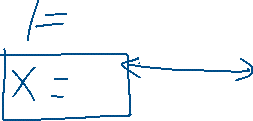 /=
X =